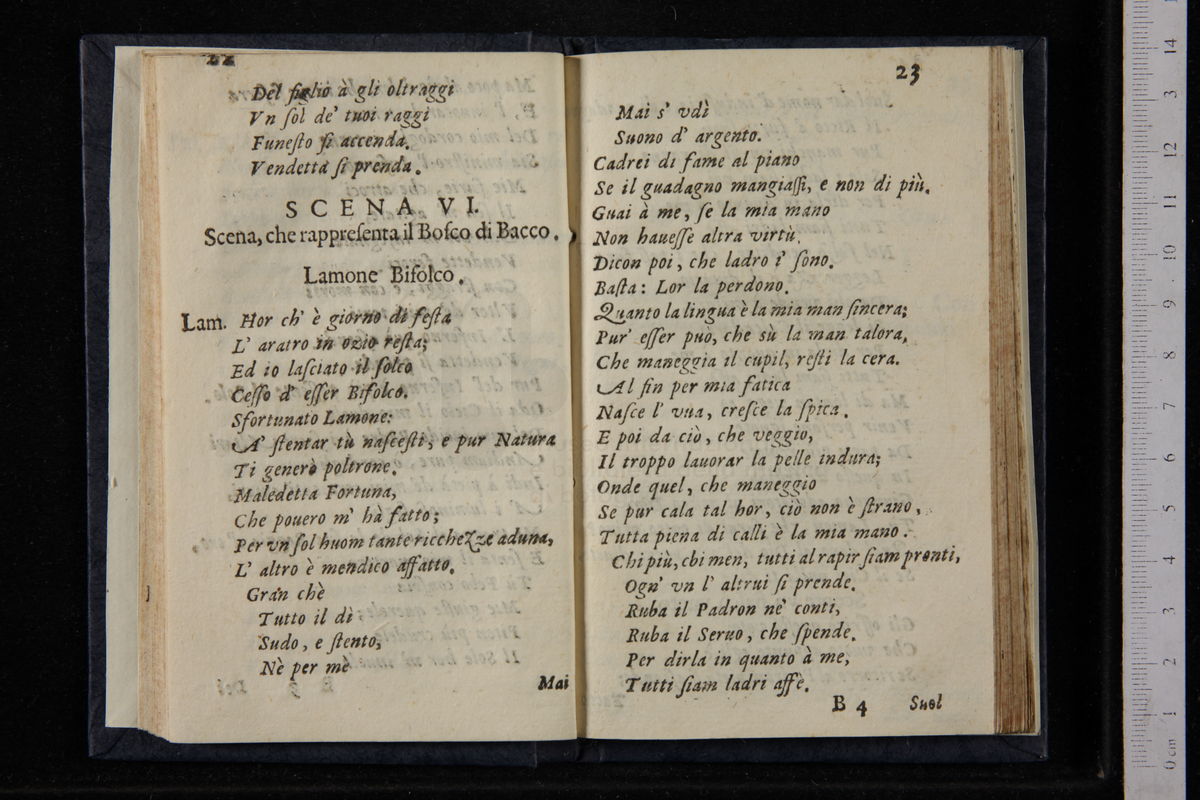 22
Del figlio à gli oltraggi
Vn ſol de' tuoi raggi
Funeſto ſi accenda.
Vendetta ſi prenda.
SCENA VI.
Scena, che rappreſenta il Boſco di Bacco.
Lamone Bifolco.
Lam. Hor ch' è giorno di feſta
L' aratro in ozio reſta;
Ed io laſciato il ſolco
Ceſſo d' eſſer Bifolco.
Sfortunato Lamone:
A' ſtentar tù naſceſti, e pur Natura
Ti generò poltrone.
Maledetta Fortuna,
Che pouero m' hà fatto;
Per vn ſol huom tante ricchezze aduna,
L' altro è mendico affatto.
Gran chè
Tutto il dì
Sudo, e ſtento,
Nè per mè
Mai
23
Mai s' vdì
Suono d' argento.
Cadrei di fame al piano
Se il guadagno mangiaſſi, e non di più.
Guai à me, ſe la mia mano
Non haueſſe altra virtù.
Dicon poi, che ladro i' ſono.
Baſta: Lor la perdono.
Quanto la lingua è la mia man ſincera;
Pur' eſſer può, che sù la man talora,
Che maneggia il cupil, reſti la cera.
Al fin per mia fatica
Naſce l' vua, creſce la ſpica.
E poi da ciò, che veggio,
Il troppo lauorar la pelle indura;
Onde quel, che maneggio
Se pur cala tal hor, ciò non è ſtrano,
Tutta piena di calli è la mia mano.
Chi più, chi men, tutti al rapir ſiam pronti,
Ogn' vn l' altrui ſi prende.
Ruba il Padron ne' conti,
Ruba il Seruo, che ſpende.
Per dirla in quanto à me,
Tutti ſiam ladri affè.
B 4 Suol